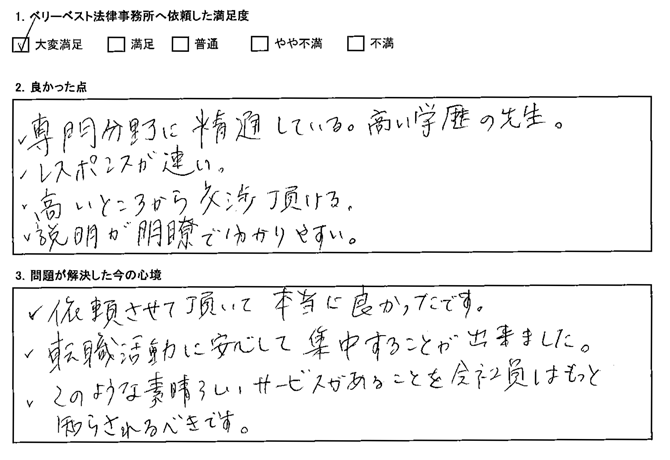 1. ベリーベスト法律事務所へ依頼した満足度
☑ 大変満足 □ 満足 □ 普通 □ やや不満 □ 不満
2. 良かった点
✓専門分野に精通している。高い学歴の先生。
✓レスポンスが速い。
✓高いところから交渉頂ける。
✓説明が明瞭でわかりやすい。
3. 問題が解決した今の心境
✓依頼させて頂いて本当に良かったです。
✓転職活動に安心して集中することが出来ました。
✓このような素晴らしいサービスがあることを会社員はもっと
知らされるべきです。